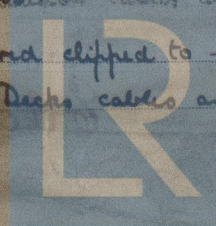 LR
nd clipped to -
Decks cables a